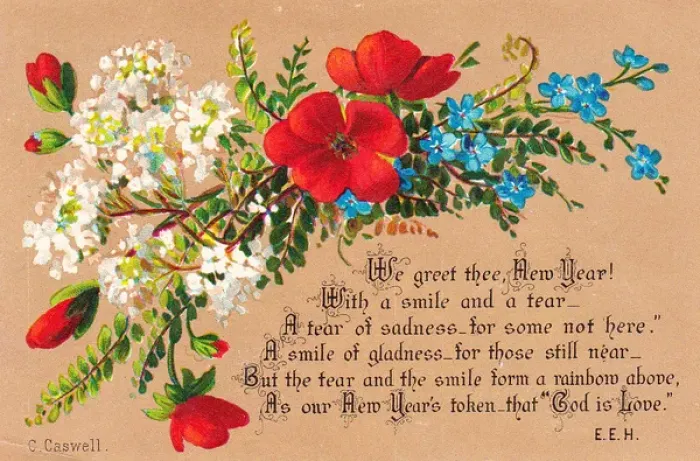 We greet thee, New Year!
With a smile and a tear_
A tear of sadness_for some not here."
A smile of gladness_for those still near_
But the tear and the smile form a rainbow above,
As our New Year's token_that "God is Love."
E.E.H.
C. Caswell.